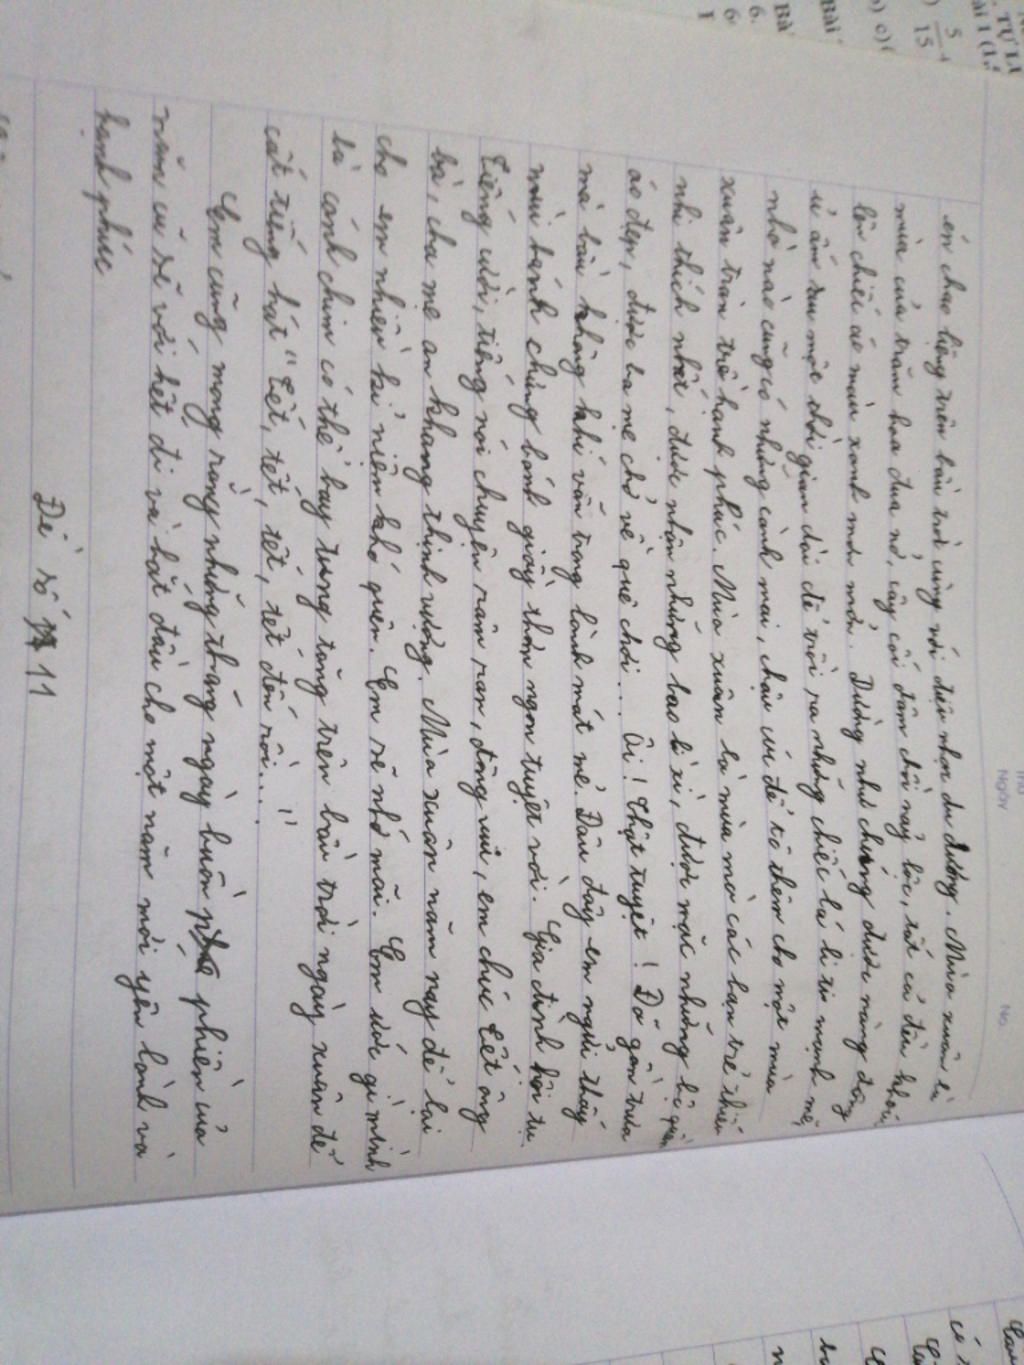 én chao liệng trên bầu trời cùng với điệu nhạc du dương. Mùa xuân là
mùa của trăm hoa đua nở, cây cối đâm chồi nảy lộc, tất cả đều khoác
lên chiếc áo màu xanh mơn mởn. Dường như chúng được nàng đông
ủ ấm sau một thời gian dài để trồi ra những chiếc lá li ti mạnh mẽ
nhà nào cũng có những cành mai, chậu cúc để tô thêm cho một mùa
xuân tràn trề hạnh phúc. Mùa xuân là mùa mà các bạn trẻ thiếu
nhi thích nhất, được nhận những bao lì xì, được mặc những bộ quần
áo đẹp, được ba mẹ chở về quê chơi... Ôi! Thật tuyệt! Đã gần trưa
mà bầu không khí vẫn trong lành mát mẻ. Đâu đây em ngửi thấy
mùi bánh chưng bánh giầy thơm ngon tuyệt vời. Gia đình hội tụ
Tiếng cười, tiếng nói chuyện râm ran, đông vui, em chúc Tết ông
bà, cha mẹ an khang thịnh vượng. Mùa xuân năm nay để lại
cho em nhiều kỉ niệm khó quên. Em sẽ nhớ mãi. Em ước gì mình
là cánh chim có thể bay tung tăng trên bầu trời ngày xuân để
cất tiếng hát "Tết, tết, tết, tết đến rồi..."
Em cũng mong rằng những tháng ngày buồn phiền của
năm cũ sẽ vơi hết đi và bắt đầu cho một năm mới yên lành và
hạnh phúc
Đề số 11
Ngày
No.
TỰ LU
5
15
c)
Bài
6.